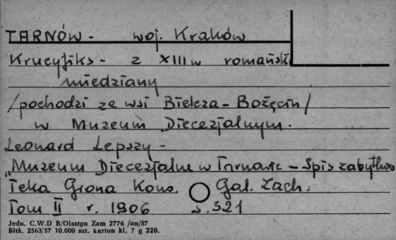 TARNÓW - woj. Kraków
Krucyfiks - z XIII w romański
miedziany
/pochodzi ze wsi Bielcza - Bożęcin/
w Muzeum Diecezjalnym.
Leonard Lepszy -
"Muzeum Diecezjalne w Tarnowie - Spis zabytków
Teka Grona Kons. Gal. Zach.
Tom II r. 1906 s. 321
Jedn. C.W.D B/Olsztyn Zam 2776 /on/57
Bltk. 2563/57 10.000 szt. karton kl. 7 g 220.